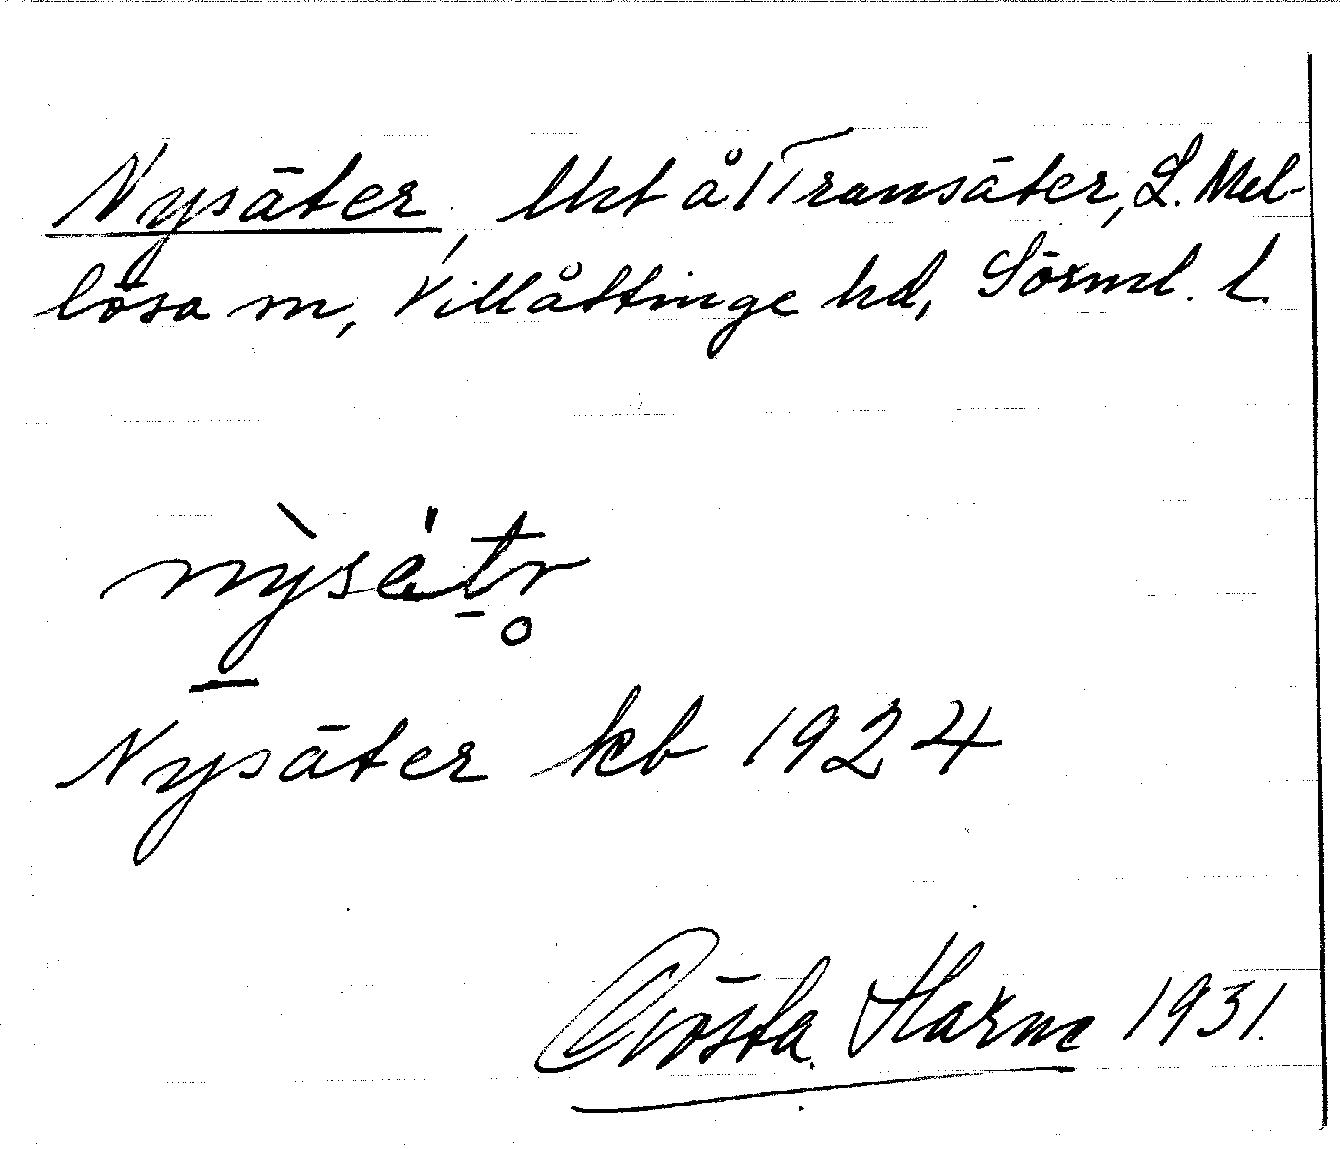 Nysäter, lht å 1 Transäter, L. Mel-
lösa sn, Villåttinge hd, Sörml. l.
nỳsètr̥
Nysäter kb 1924
Gösta Harne 1931.